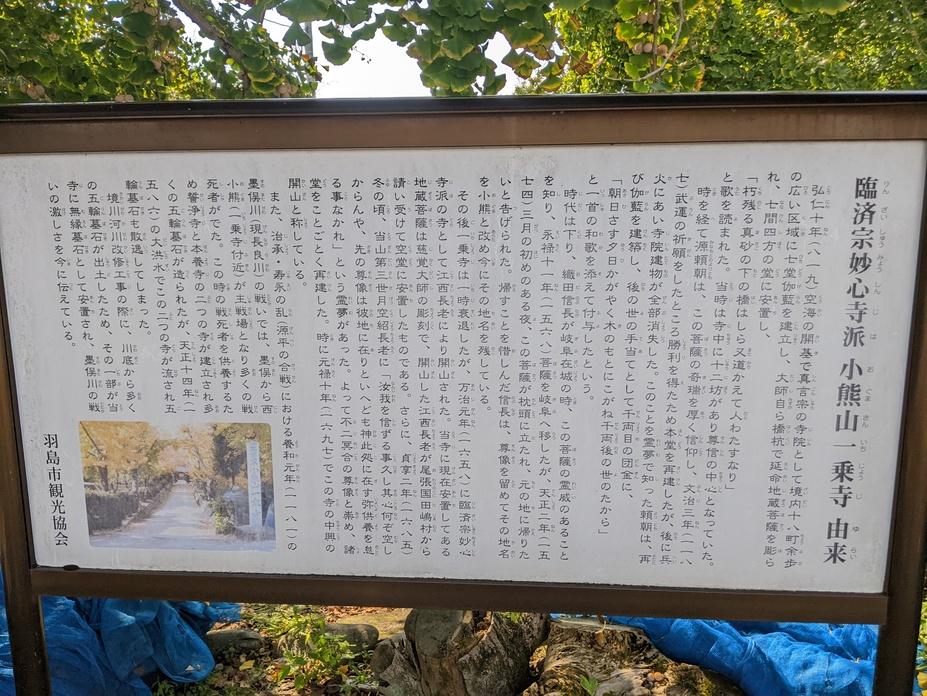 臨済宗妙心寺派 小熊山一乗寺 由来
弘仁十年（八一九）空海の開基で真言宗の寺院として境内十八町余歩
の広い区域に七堂伽藍を建立し、大師自ら橋杭で延命地蔵菩薩を彫ら
れ、七間四方の堂に安置し、
「朽残る真砂の下の橋はしら又道かえて人わたすなり」
と歌を読まれた。当時は寺中に十二坊があり尊信の中心となっていた。
時を経て源頼朝は、この菩薩の奇瑞を厚く信仰し、文治三年（一一八
七）武運の祈願をしたところ勝利を得たため本堂を再建したが、後に兵
火にあい寺院建物が全部消失した。このことを霊夢で知った頼朝は、再
び伽藍を建築し、後の世の手当てとして千両目の団金に、
「朝日さす夕日かがやく木のもとにこがね千両後の世のたから」
と一首の和歌を添えて付与したという。
時代は下り、織田信長が岐阜在城の時、この菩薩の霊威のあること
を知り、永禄十一年（一五六八）菩薩を岐阜へ移したが、天正二年（一五
七四）三月の初めのある夜、この菩薩が枕頭に立たれ、元の地に帰りた
いと告げられた。帰すことを惜しんだ信長は、尊像を留めてその地名
を小熊と改め今にその地名を残している。
その後、一乗寺は一時衰退したが、万治元年（一六五八）に臨済宗妙心
寺派の寺として江西長老により開山された。当寺に現在安置してある
地蔵菩薩は慈覚大師の彫刻で、開山した江西長老が尾張国田嶋村から
請い受けて空堂に安置したものである。さらに、貞享二年（一六八五）
冬の頃、当山第三世月空紹長老に「汝我を信ずる事久し其心何ぞ空し
からんや、先の尊像は彼地に在りといへども神此処に在す弥供養を怠
る事なかれ」という霊夢があった。よって不二冥合の尊像と崇め、諸
堂をことごとく再建した。時に元禄十年（一六九七）でこの寺の中興の
開山と称している。
また、治承・寿永の乱（源平の合戦）における養和元年（一一八一）の
墨俣川（現長良川）の戦いでは、墨俣から西
小熊（一乗寺付近）が主戦場となり多くの戦
死者がでた。この時の戦死者を供養するた
め誓浄寺と本養寺の二つの寺が建立され多
くの五輪墓石が造られたが、天正十四年（一
五八六）の大洪水でこの二つの寺が流され五
輪墓石も散逃してしまった。
境川河川改修工事の際に、川底から多く
の五輪墓石が出土したため、その一部が当
寺に無縁墓石として安置され、墨俣川の戦
いの激しさを今に伝えている。
羽島市観光協会